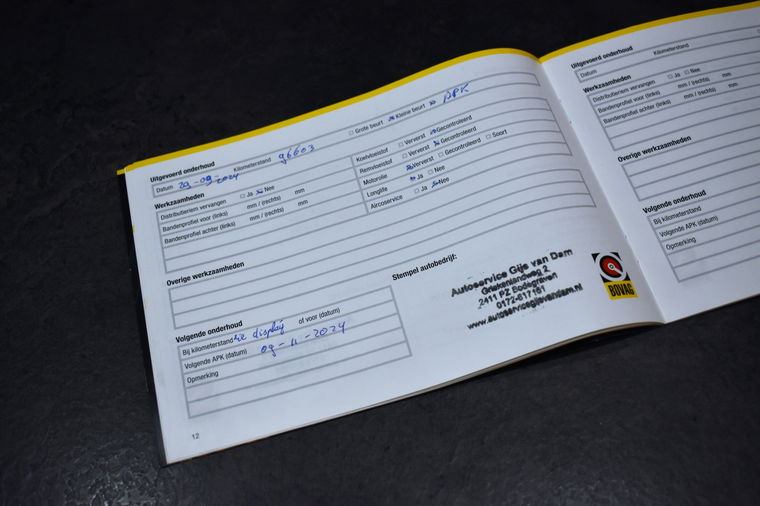 Uitgevoerd onderhoud
Datum 29-09-2024 Kilometerstand 96603 □ Grote beurt ☒ Kleine beurt ☒ APK
Werkzaamheden
Distributieriem vervangen □ Ja ☒ Nee
Bandenprofiel voor (links) mm / (rechts) mm
Bandenprofiel achter (links) mm / (rechts) mm
Koelvloeistof □ Ververst ☒ Gecontroleerd
Remvloeistof □ Ververst ☒ Gecontroleerd
Motorolie ☒ Ververst □ Gecontroleerd □ Soort
Longlife ☒ Ja □ Nee
Aircoservice □ Ja ☒ Nee
Overige werkzaamheden
Stempel autobedrijf:
Autoservice Gijs van Dam
2411 PZ Bodegraven
0172-617161
www.autoservicegijsvandam.nl
BOVAG
Volgende onderhoud
Bij kilometerstand zie display of voor (datum)
Volgende APK (datum) 09-11-2024
Opmerking
12
Uitgevoerd onderhoud
Datum Kilometerstand
Werkzaamheden
Distributieriem vervangen □ Ja □ Nee
Bandenprofiel voor (links) mm / (rechts) mm
Bandenprofiel achter (links) mm / (rechts)
Overige werkzaamheden
Volgende onderhoud
Bij kilometerstand
Volgende APK (datum)
Opmerking